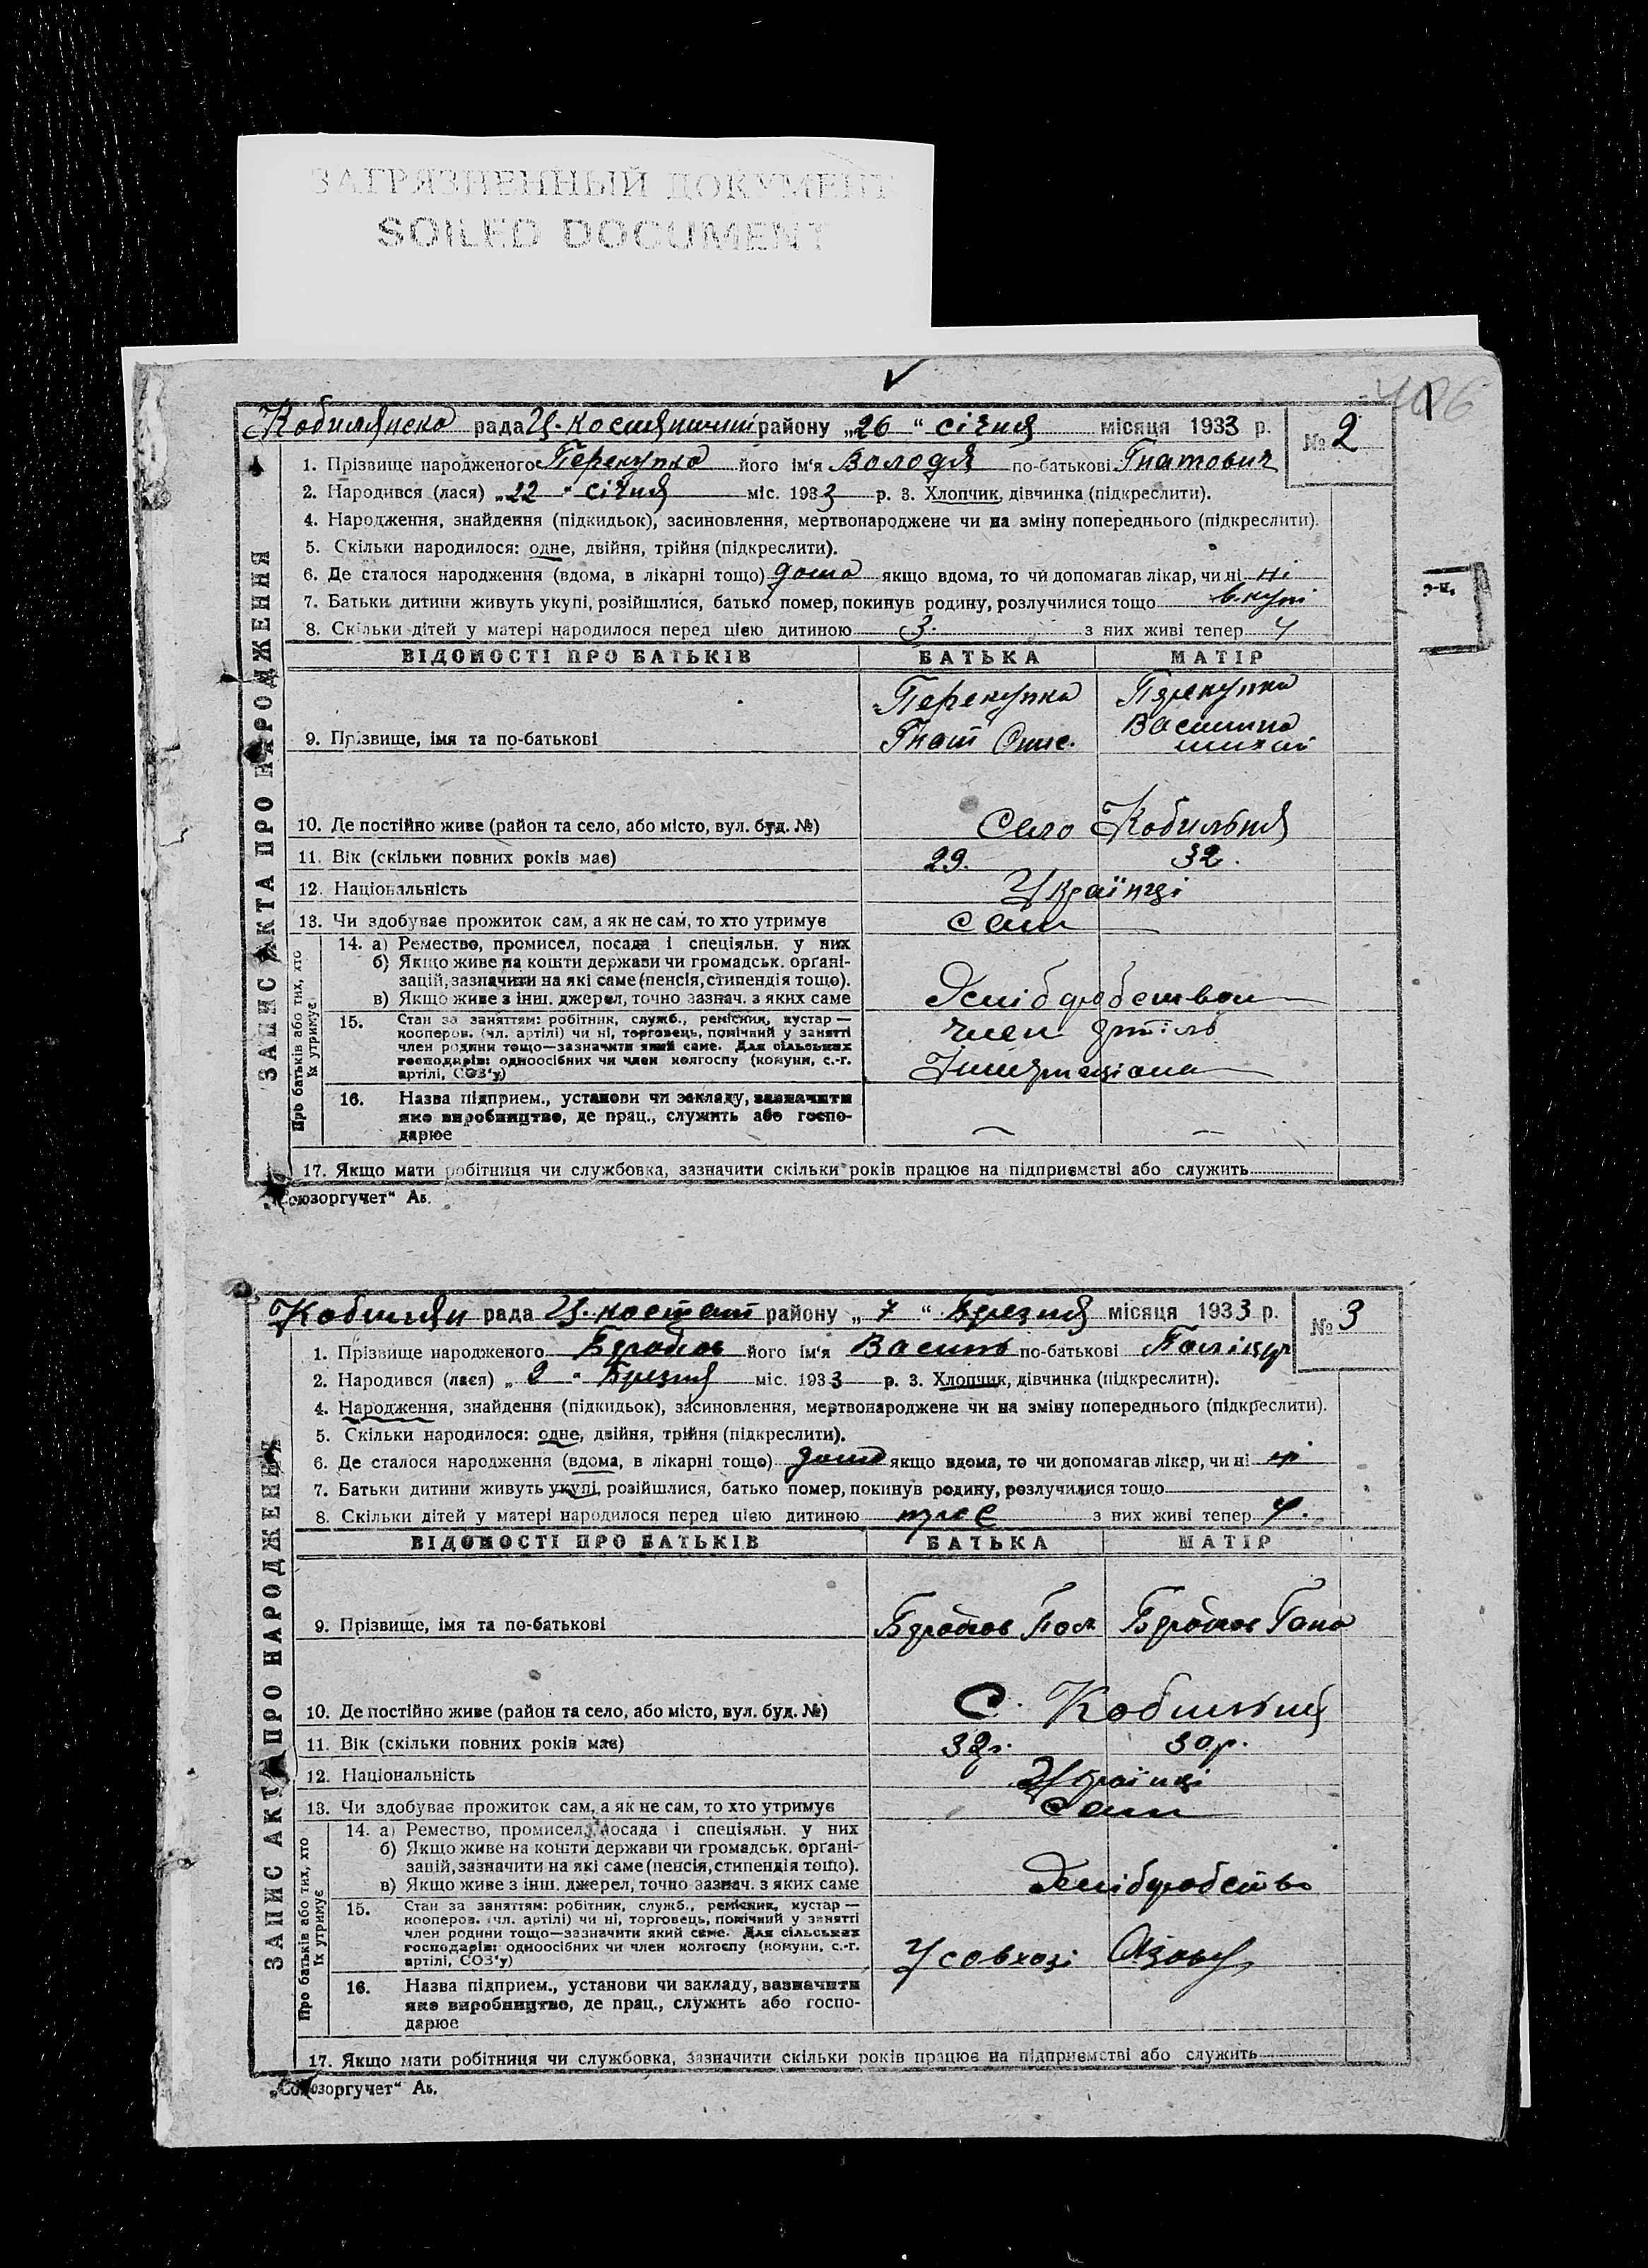 ЗАГРЯЗНЕННЫЙ ДОКУМЕНТ
SOILED DOCUMENT
ЗАПИС АКТА ПРО НАРОДЖЕННЯ
рада району „26“ січня місяця 1933 р.
№ 2
1. Прізвище народженого Перекупка його ім'я Володя по-батькові Гнатович
2. Народився (лася) „22“ січня міс. 1933 р. 3. Хлопчик, дівчинка (підкреслити).
4. Народження, знайдення (підкидьок), засиновлення, мертвонароджене чи на зміну попереднього (підкреслити).
5. Скільки народилося: одне, двійня, трійня (підкреслити).
6. Де сталося народження (вдома, в лікарні тощо) дома якщо вдома, то чи допомагав лікар, чи ні ні
7. Батьки дитини живуть укупі, розійшлися, батько помер, покинув родину, розлучилися тощо вкупі
8. Скільки дітей у матері народилося перед цією дитиною 3. з них живі тепер 4
ВІДОМОСТІ ПРО БАТЬКІВ БАТЬКА МАТІР
9. Прізвище, імя та по-батькові Перекупка Гнат Перекупка
10. Де постійно живе (район та село, або місто, вул. буд. №) Село Кобильня
11. Вік (скільки повних років має) 29. 32.
12. Національність Українці
13. Чи здобуває прожиток сам, а як не сам, то хто утримує сам
Про батьків або тих, хто їх утримує
14. а) Ремество, промисел, посада і спеціяльн. у них
б) Якщо живе на кошти держави чи громадськ. орґані-
зацій, зазначити на які саме (пенсія, стипендія тощо).
в) Якщо живе з інш. джерел, точно зазнач. з яких саме
15. Стан за заняттям: робітник, служб., ремісник, кустар —
кооперов. (чл. артілі) чи ні, торговець, помічний у занятті
член родини тощо—зазначити який саме. Для сільських
господарів: одноосібних чи член колгоспу (комуни, с.-г.
артілі, СОЗ'у)
член
16. Назва підприєм., установи чи закладу, зазначити
яке виробництво, де прац., служить або госпо-
дарює
17. Якщо мати робітниця чи службовка, зазначити скільки років працює на підприємстві або служить
„Союзоргучет“ Ав.
ЗАПИС АКТА ПРО НАРОДЖЕННЯ
рада району „7“ Березня місяця 1933 р.
№ 3
1. Прізвище народженого його ім'я Василь по-батькові
2. Народився (лася) „2“ Березня міс. 1933 р. 3. Хлопчик, дівчинка (підкреслити).
4. Народження, знайдення (підкидьок), засиновлення, мертвонароджене чи на зміну попереднього (підкреслити).
5. Скільки народилося: одне, двійня, трійня (підкреслити).
6. Де сталося народження (вдома, в лікарні тощо) дома якщо вдома, то чи допомагав лікар, чи ні ні
7. Батьки дитини живуть укупі, розійшлися, батько помер, покинув родину, розлучилися тощо
8. Скільки дітей у матері народилося перед цією дитиною троє з них живі тепер 4.
ВІДОМОСТІ ПРО БАТЬКІВ БАТЬКА МАТІР
9. Прізвище, імя та по-батькові
10. Де постійно живе (район та село, або місто, вул. буд. №) С. Кобильня
11. Вік (скільки повних років має) 32р. 30р.
12. Національність Українці
13. Чи здобуває прожиток сам, а як не сам, то хто утримує сам
Про батьків або тих, хто їх утримує
14. а) Ремество, промисел, посада і спеціяльн. у них
б) Якщо живе на кошти держави чи громадськ. орґані-
зацій, зазначити на які саме (пенсія, стипендія тощо).
в) Якщо живе з інш. джерел, точно зазнач. з яких саме
15. Стан за заняттям: робітник, служб., ремісник, кустар —
кооперов. (чл. артілі) чи ні, торговець, помічний у занятті
член родини тощо—зазначити який саме. Для сільських
господарів: одноосібних чи член колгоспу (комуни, с.-г.
артілі, СОЗ'у)
У совхозі
16. Назва підприєм., установи чи закладу, зазначити
яке виробництво, де прац., служить або госпо-
дарює
17. Якщо мати робітниця чи службовка, зазначити скільки років працює на підприємстві або служить
„Союзоргучет“ Ав.